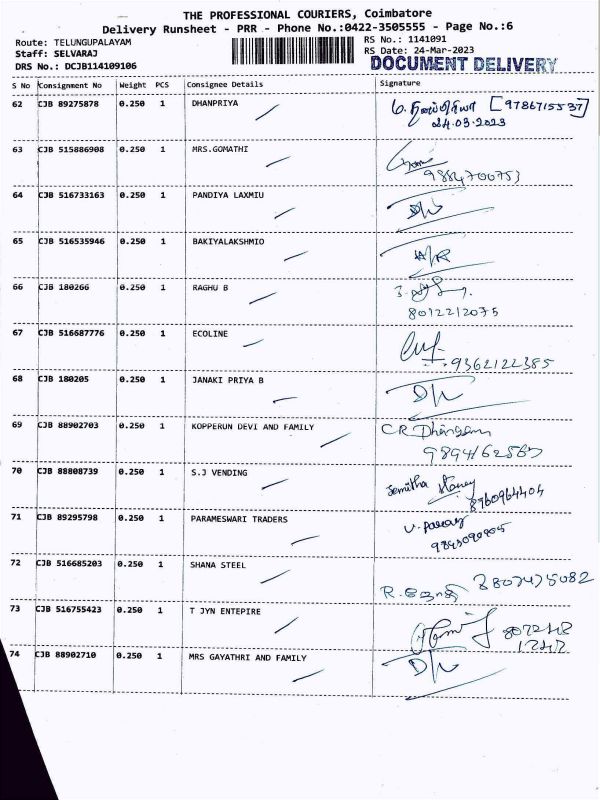 THE PROFESSIONAL COURIERS, Coimbatore
Delivery Runsheet - PRR - Phone No.:0422-3505555 - Page No.:6
Route: TELUNGUPALAYAM
RS No.: 1141091
Staff: SELVARAJ
RS Date: 24-Mar-2023
DRS No.: DCJB114109106
DOCUMENT DELIVERY
S No Consignment No Weight PCS Consignee Details Signature
62 CJB 89275878 0.250 1 DHANPRIYA [9786715537]
24.03.2023
63 CJB 515886908 0.250 1 MRS.GOMATHI
9884700753
64 CJB 516733163 0.250 1 PANDIYA LAXMIU
65 CJB 516535946 0.250 1 BAKIYALAKSHMIO
66 CJB 180266 0.250 1 RAGHU B
8012212075
67 CJB 516687776 0.250 1 ECOLINE
9362122385
68 CJB 180205 0.250 1 JANAKI PRIYA B
D/L
69 CJB 88902703 0.250 1 KOPPERUN DEVI AND FAMILY
70 CJB 88808739 0.250 1 S.J VENDING
8960964404
71 CJB 89295798 0.250 1 PARAMESWARI TRADERS
72 CJB 516685203 0.250 1 SHANA STEEL
73 CJB 516755423 0.250 1 T JYN ENTEPIRE
74 CJB 88902710 0.250 1 MRS GAYATHRI AND FAMILY
D/L